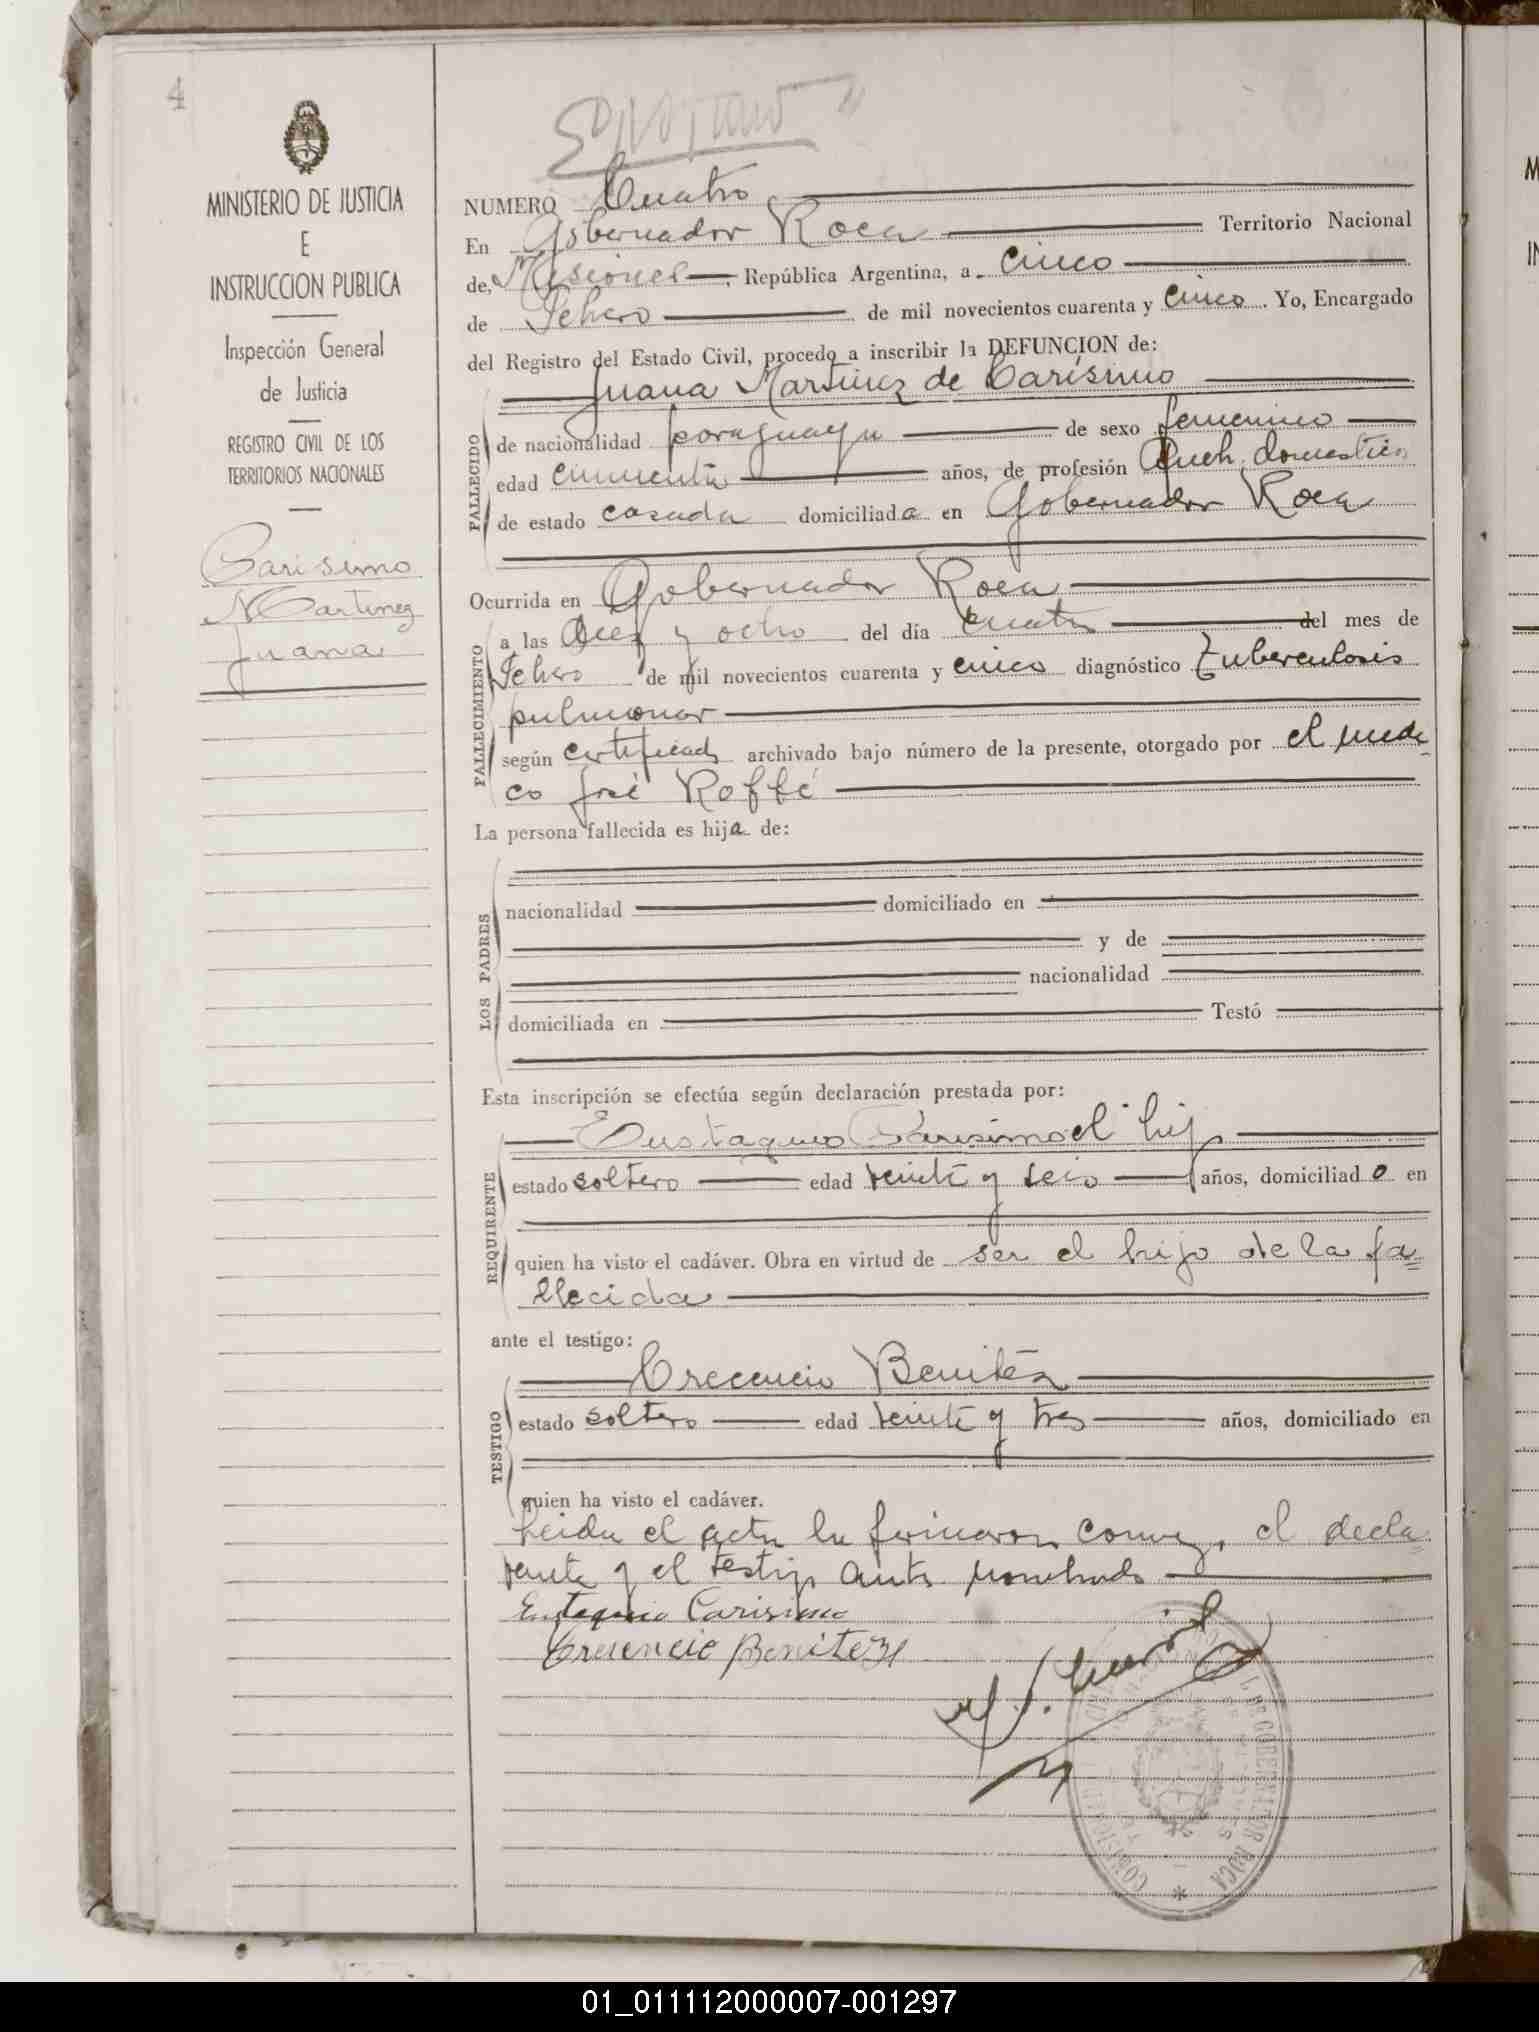 4
MINISTERIO DE JUSTICIA
E
INSTRUCCION PUBLICA
Inspección General
de Justicia
REGISTRO CIVIL DE LOS
TERRITORIOS NACIONALES
Carisimo
Martinez
Juana
NUMERO Cuatro
En Gobernador Roca Territorio Nacional
de, Misiones, República Argentina, a cinco
de Febrero de mil novecientos cuarenta y cinco. Yo, Encargado
del Registro del Estado Civil, procedo a inscribir la DEFUNCION de:
Juana Martinez de Carísimo
FALLECIDO
de nacionalidad paraguaya de sexo femenino
edad cincuenta años, de profesión Queh. domestico
de estado casada domiciliada en Gobernador Roca
Ocurrida en Gobernador Roca
FALLECIMIENTO
a las diez y ocho del día cuatro del mes de
Febrero de mil novecientos cuarenta y cinco diagnóstico Tuberculosis
pulmonar
según certificado archivado bajo número de la presente, otorgado por el medi
co José Roffé
La persona fallecida es hija de:
LOS PADRES
nacionalidad domiciliado en
y de
nacionalidad
domiciliada en Testó
Esta inscripción se efectúa según declaración prestada por:
Eustaquio Carisimo el hijo
REQUIRENTE
estado soltero edad veinte y seis años, domiciliado en
quien ha visto el cadáver. Obra en virtud de ser el hijo de la fa=
llecida
ante el testigo:
Crecencio Benitéz
TESTIGO
estado soltero edad veinte y tres años, domiciliado en
quien ha visto el cadáver.
Leida el acta la firmaron conmigo, el decla
rante y el testigo antes nombrado
Eustaquio Carisimo
Crecencio Benitez
GOBERNADOR ROCA
01_011112000007-001297